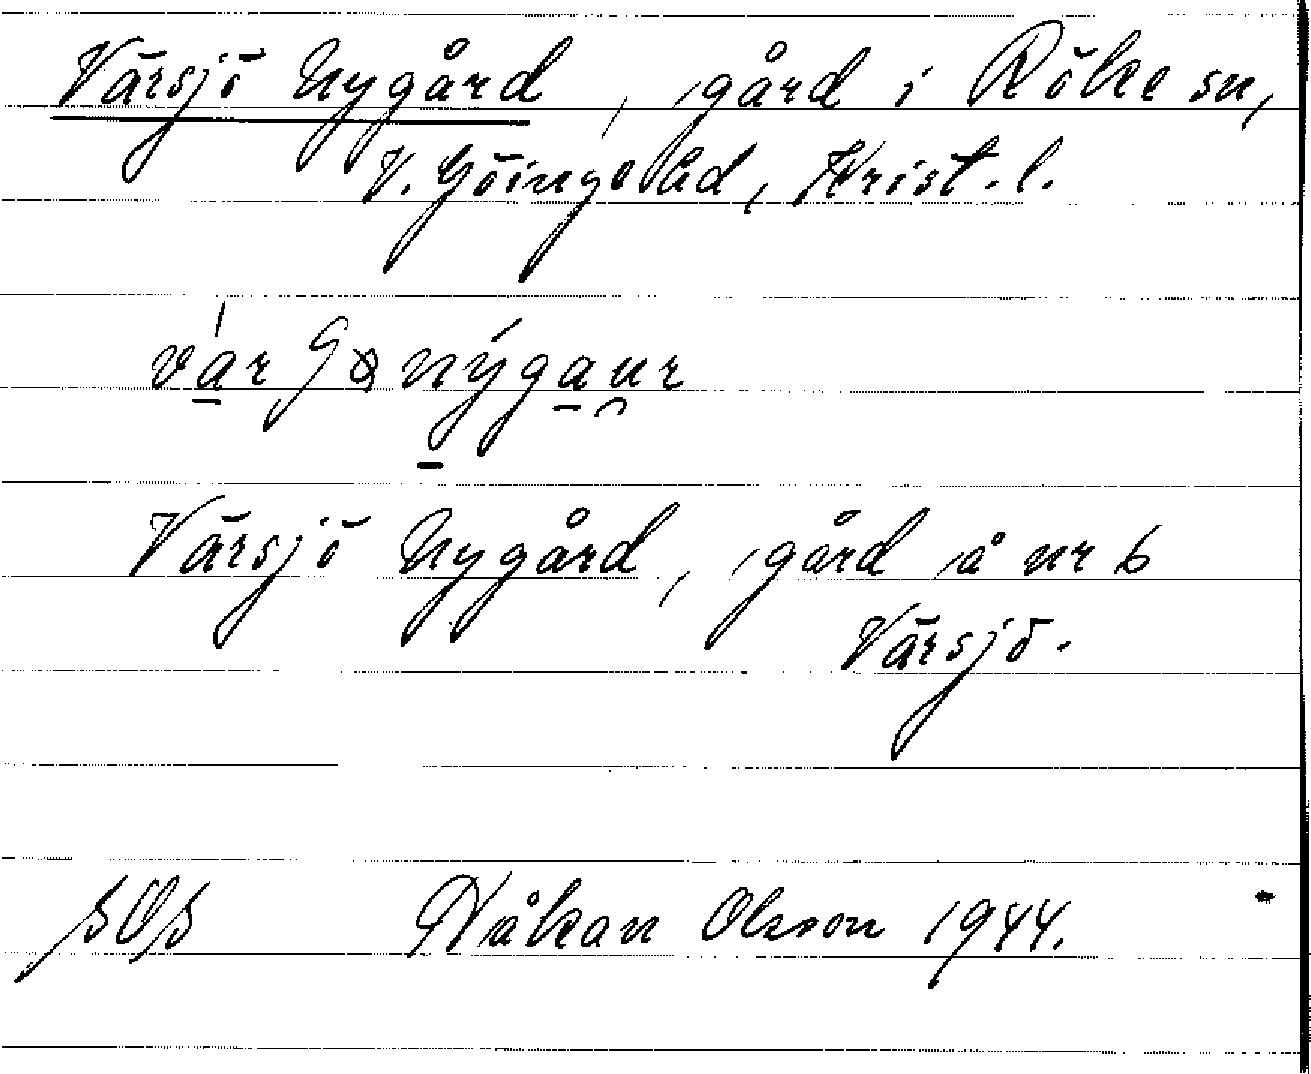 Värsjö Nygård, gård i Röke sn,
V. Göinge hd, Krist. l.
nýgaur
Värsjö Nygård, gård å nr 6
Värsjö.
SOS Håkan Olsson 1944.